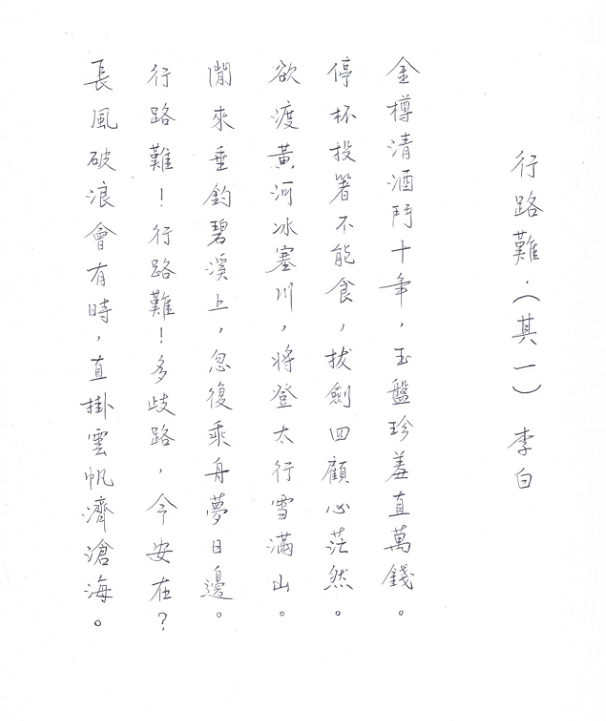 行路難.(其一) 李白
金樽清酒鬥十年，玉盤珍羞直萬錢。
停杯投箸不能食，拔劍四顧心茫然。
欲渡黃河冰塞川，將登太行雪滿山。
閒來垂釣碧溪上，忽復乘舟夢日邊。
行路難！行路難！多歧路，今安在？
長風破浪會有時，直掛雲帆濟滄海。